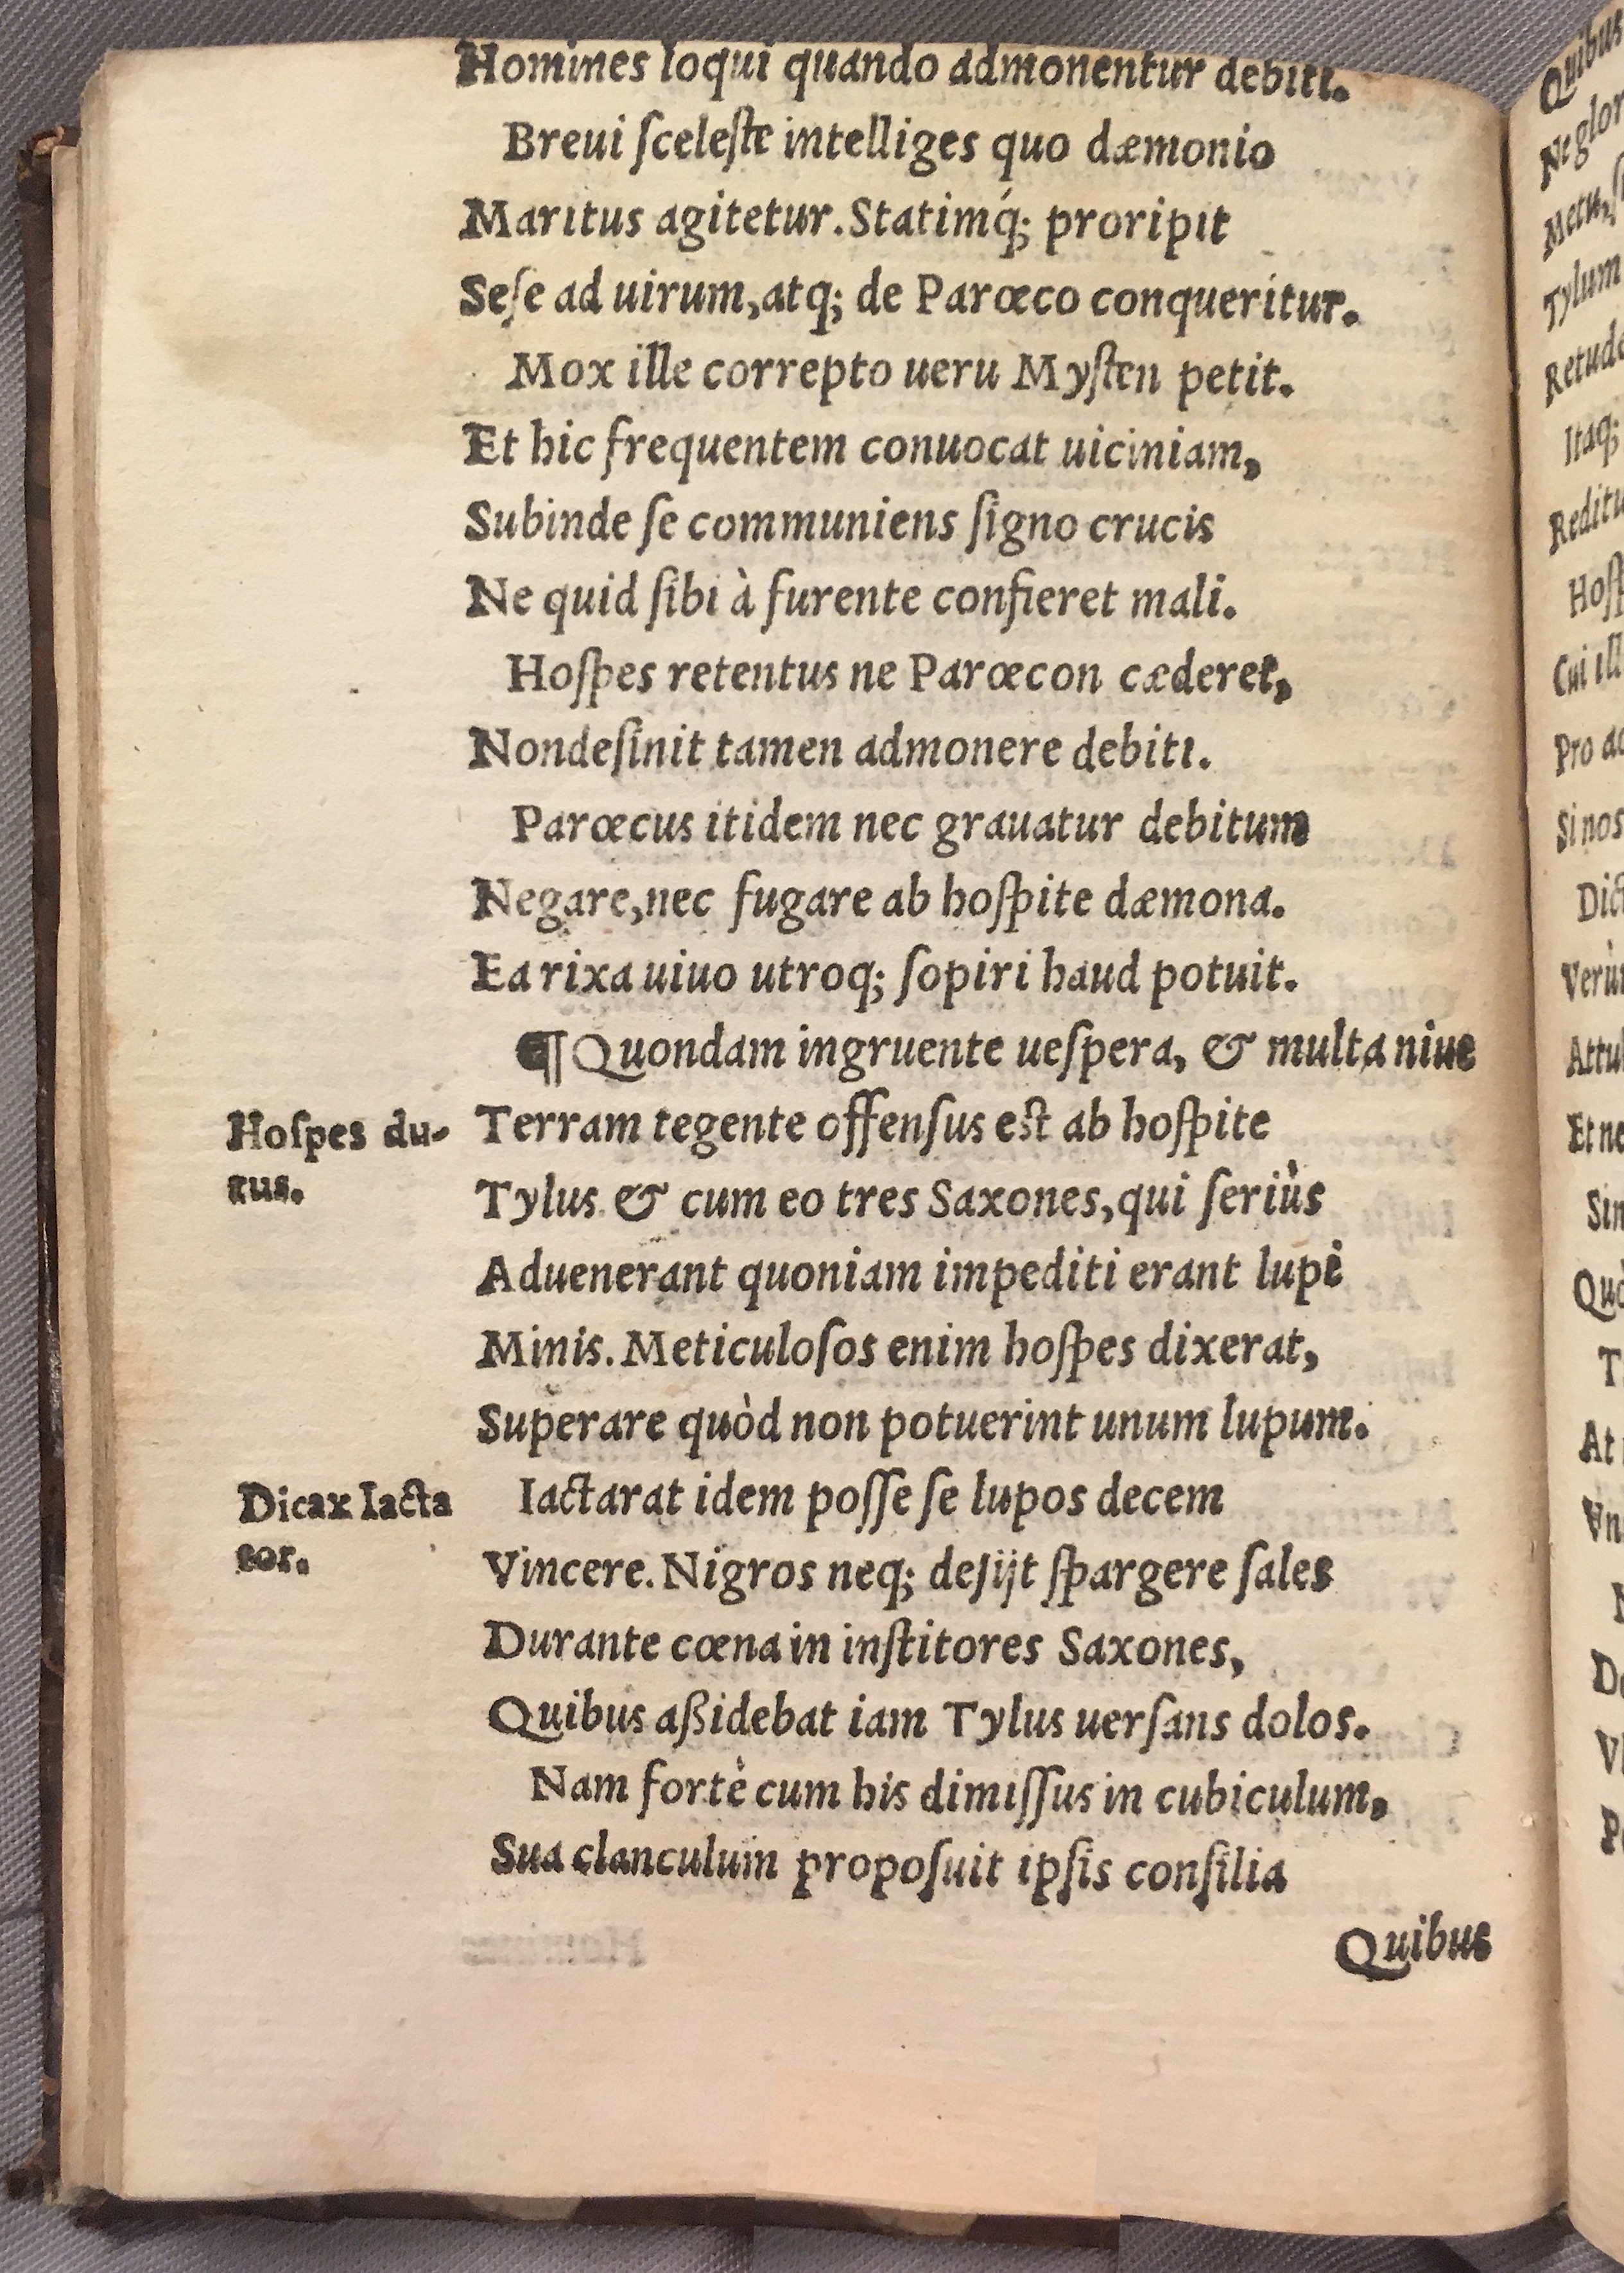 Homines loqui quando admonentur debiti.
Breui ſceleſte intelliges quo dæmonio
Maritus agitetur. Statimq́; proripit
Seſe ad uirum, atq; de Parœco conqueritur.
Mox ille correpto ueru Myſten petit.
Et hic frequentem conuocat uiciniam,
Subinde ſe communiens ſigno crucis
Ne quid ſibi à furente confieret mali.
Hoſpes retentus ne Parœcon cæderet,
Nondeſinit tamen admonere debiti.
Parœcus itidem nec grauatur debitum
Negare, nec fugare ab hoſpite dæmona.
Ea rixa uiuo utroq; ſopiri haud potuit.
¶ Quondam ingruente ueſpera, & multa niue
Hoſpes du-
rus.
Terram tegente offenſus est ab hoſpite
Tylus & cum eo tres Saxones, qui ſeriùs
Aduenerant quoniam impediti erant lupi
Minis. Meticuloſos enim hoſpes dixerat,
Superare quòd non potuerint unum lupum.
Dicax Iacta
tor.
Iactarat idem poſſe ſe lupos decem
Vincere. Nigros neq; deſijt ſpargere ſales
Durante cœna in inſtitores Saxones,
Quibus aßidebat iam Tylus uerſans dolos.
Nam fortè cum his dimiſſus in cubiculum,
Sua clanculum propoſuit ipſis conſilia
Quibus
Quibus
Metu,
Tylum
Itaq;
Cui ill
Pro
Si nos
Et ne
At